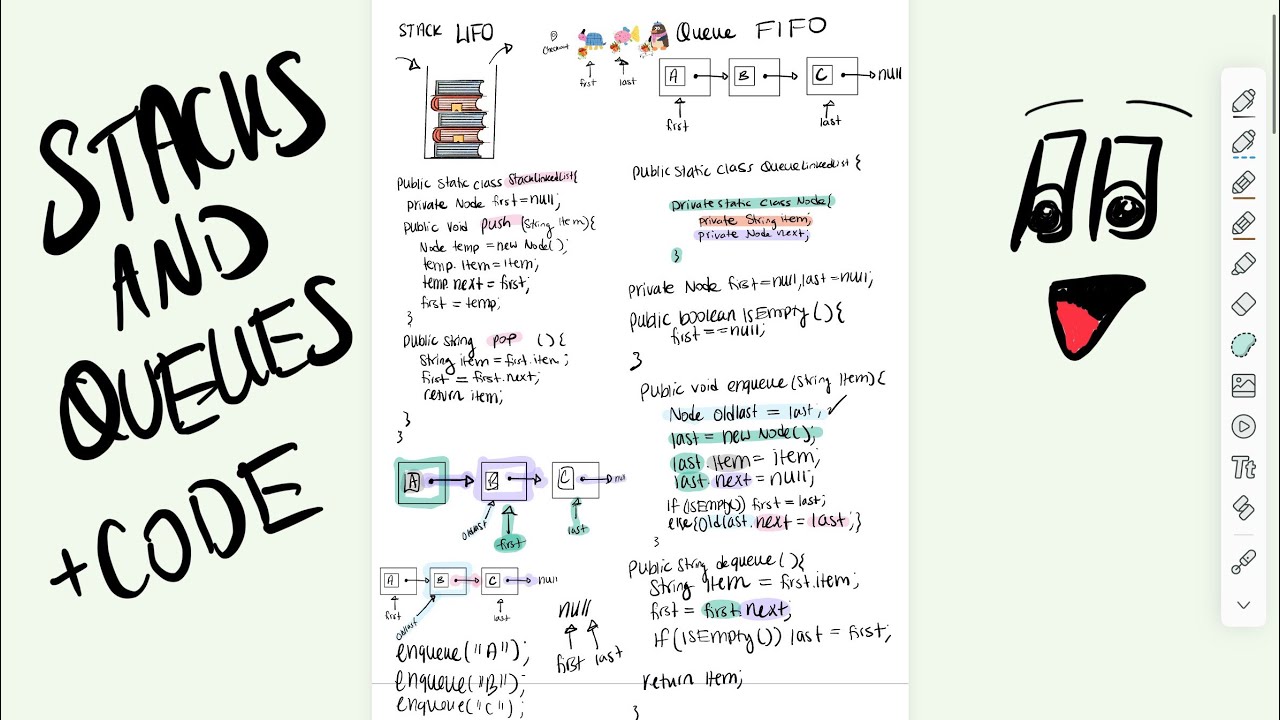 STACKS
AND
QUEUES
+CODE
STACK LIFO
Public static class StackLinkedList{
private Node first=null;
Public void push (String Item){
Node temp = new Node();
temp. Item = Item;
temp. next = first;
first = temp;
}
Public String pop (){
String item = first.item;
first = first.next;
return item;
}
}
A
B
C
null
oldlast
first
last
A
B
C
null
first
oldlast
last
enqueue("A");
enqueue("B");
enqueue("C");
null
first last
checkout
first
last
Queue FIFO
A
B
C
null
first
last
Public static class QueueLinkedList {
private static class Node{
private String item;
private Node next;
}
private Node first=null,last=null;
Public boolean IsEmpty(){
first==null;
}
Public void enqueue (String Item){
Node oldlast = last;
last = new Node();
last.Item = Item;
last.next = null;
If (ISEmpty()) first = last;
else{oldlast.next = last;}
}
Public String dequeue (){
String Item = first.item;
first = first.next;
If(ISEmpty()) last = first;
return Item;
}
Tt